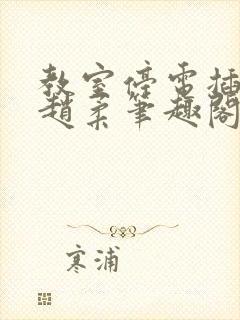 教室停電插
趙柔筆趣閣
寒浦